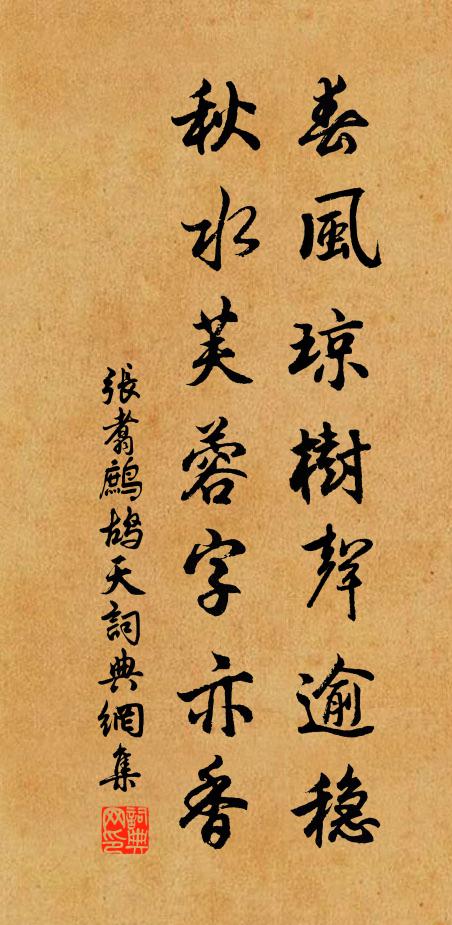 春風琼樹聲逾穏
秋水芙蓉字亦香
張翥鷓鴣天詞典網集
詞典网印